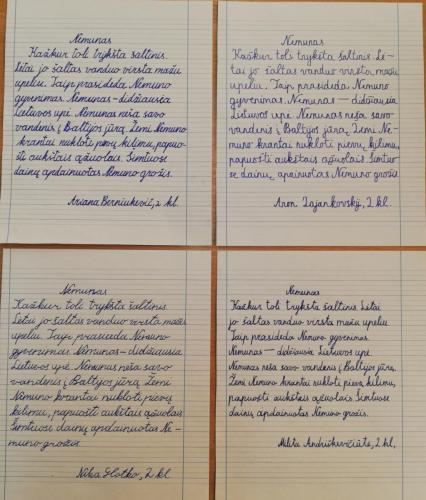 Nemunas
Kažkur toli trykšta šaltinis.
Lėtai jo šaltas vanduo virsta mažu
upeliu. Taip prasideda Nemuno
gyvenimas. Nemunas - didžiausia
Lietuvos upė. Nemunas neša savo
vandenis į Baltijos jūrą. Žemi Nemuno
krantai nukloti pievų kilimu, papuo-
šti aukštais ąžuolais. Šimtuose
dainų apdainuotas Nemuno grožis.
Ariana Berniukevič, 2 kl.
Nemunas
Kažkur toli trykšta šaltinis. Lė-
tai jo šaltas vanduo virsta mažu
upeliu. Taip prasideda Nemuno
gyvenimas. Nemunas — didžiausia
Lietuvos upė. Nemunas neša savo
vandenis į Baltijos jūrą. Žemi Ne-
muno krantai nukloti pievų kilimu,
papuošti aukštais ąžuolais. Šimtuo-
se dainų, apainuotas Nemuno grožis.
Aron Zajankovskij, 2 kl.
Nemunas
Kažkur toli trykšta šaltinis.
Lėtai jo šaltas vanduo virsta mažu
upeliu. Taip prasideda Nemuno
gyvenimas. Nemunas - didžiausia
Lietuvos upė. Nemunas neša savo
vandenis į Baltijos jūrą. Žemi
Nemuno krantai nukloti pievų
kilimu, papuošti aukštais ąžuolais.
Šimtuose dainų apdainuotas Ne-
muno grožis.
Nika Slotko, 2 kl.
Nemunas
Kažkur toli trykšta šaltinis. Lėtai
jo šaltas vanduo virsta mažu upeliu.
Taip prasideda Nemuno gyvenimas.
Nemunas — didžiausia Lietuvos upė.
Nemunas neša savo vandenis į Baltijos jūrą.
Žemi Nemuno krantai nukloti pievų kilimu,
papuošti aukštais ąžuolais. Šimtuose
dainų apdainuotas Nemuno grožis.
Milita Andriukevičiūtė, 2 kl.